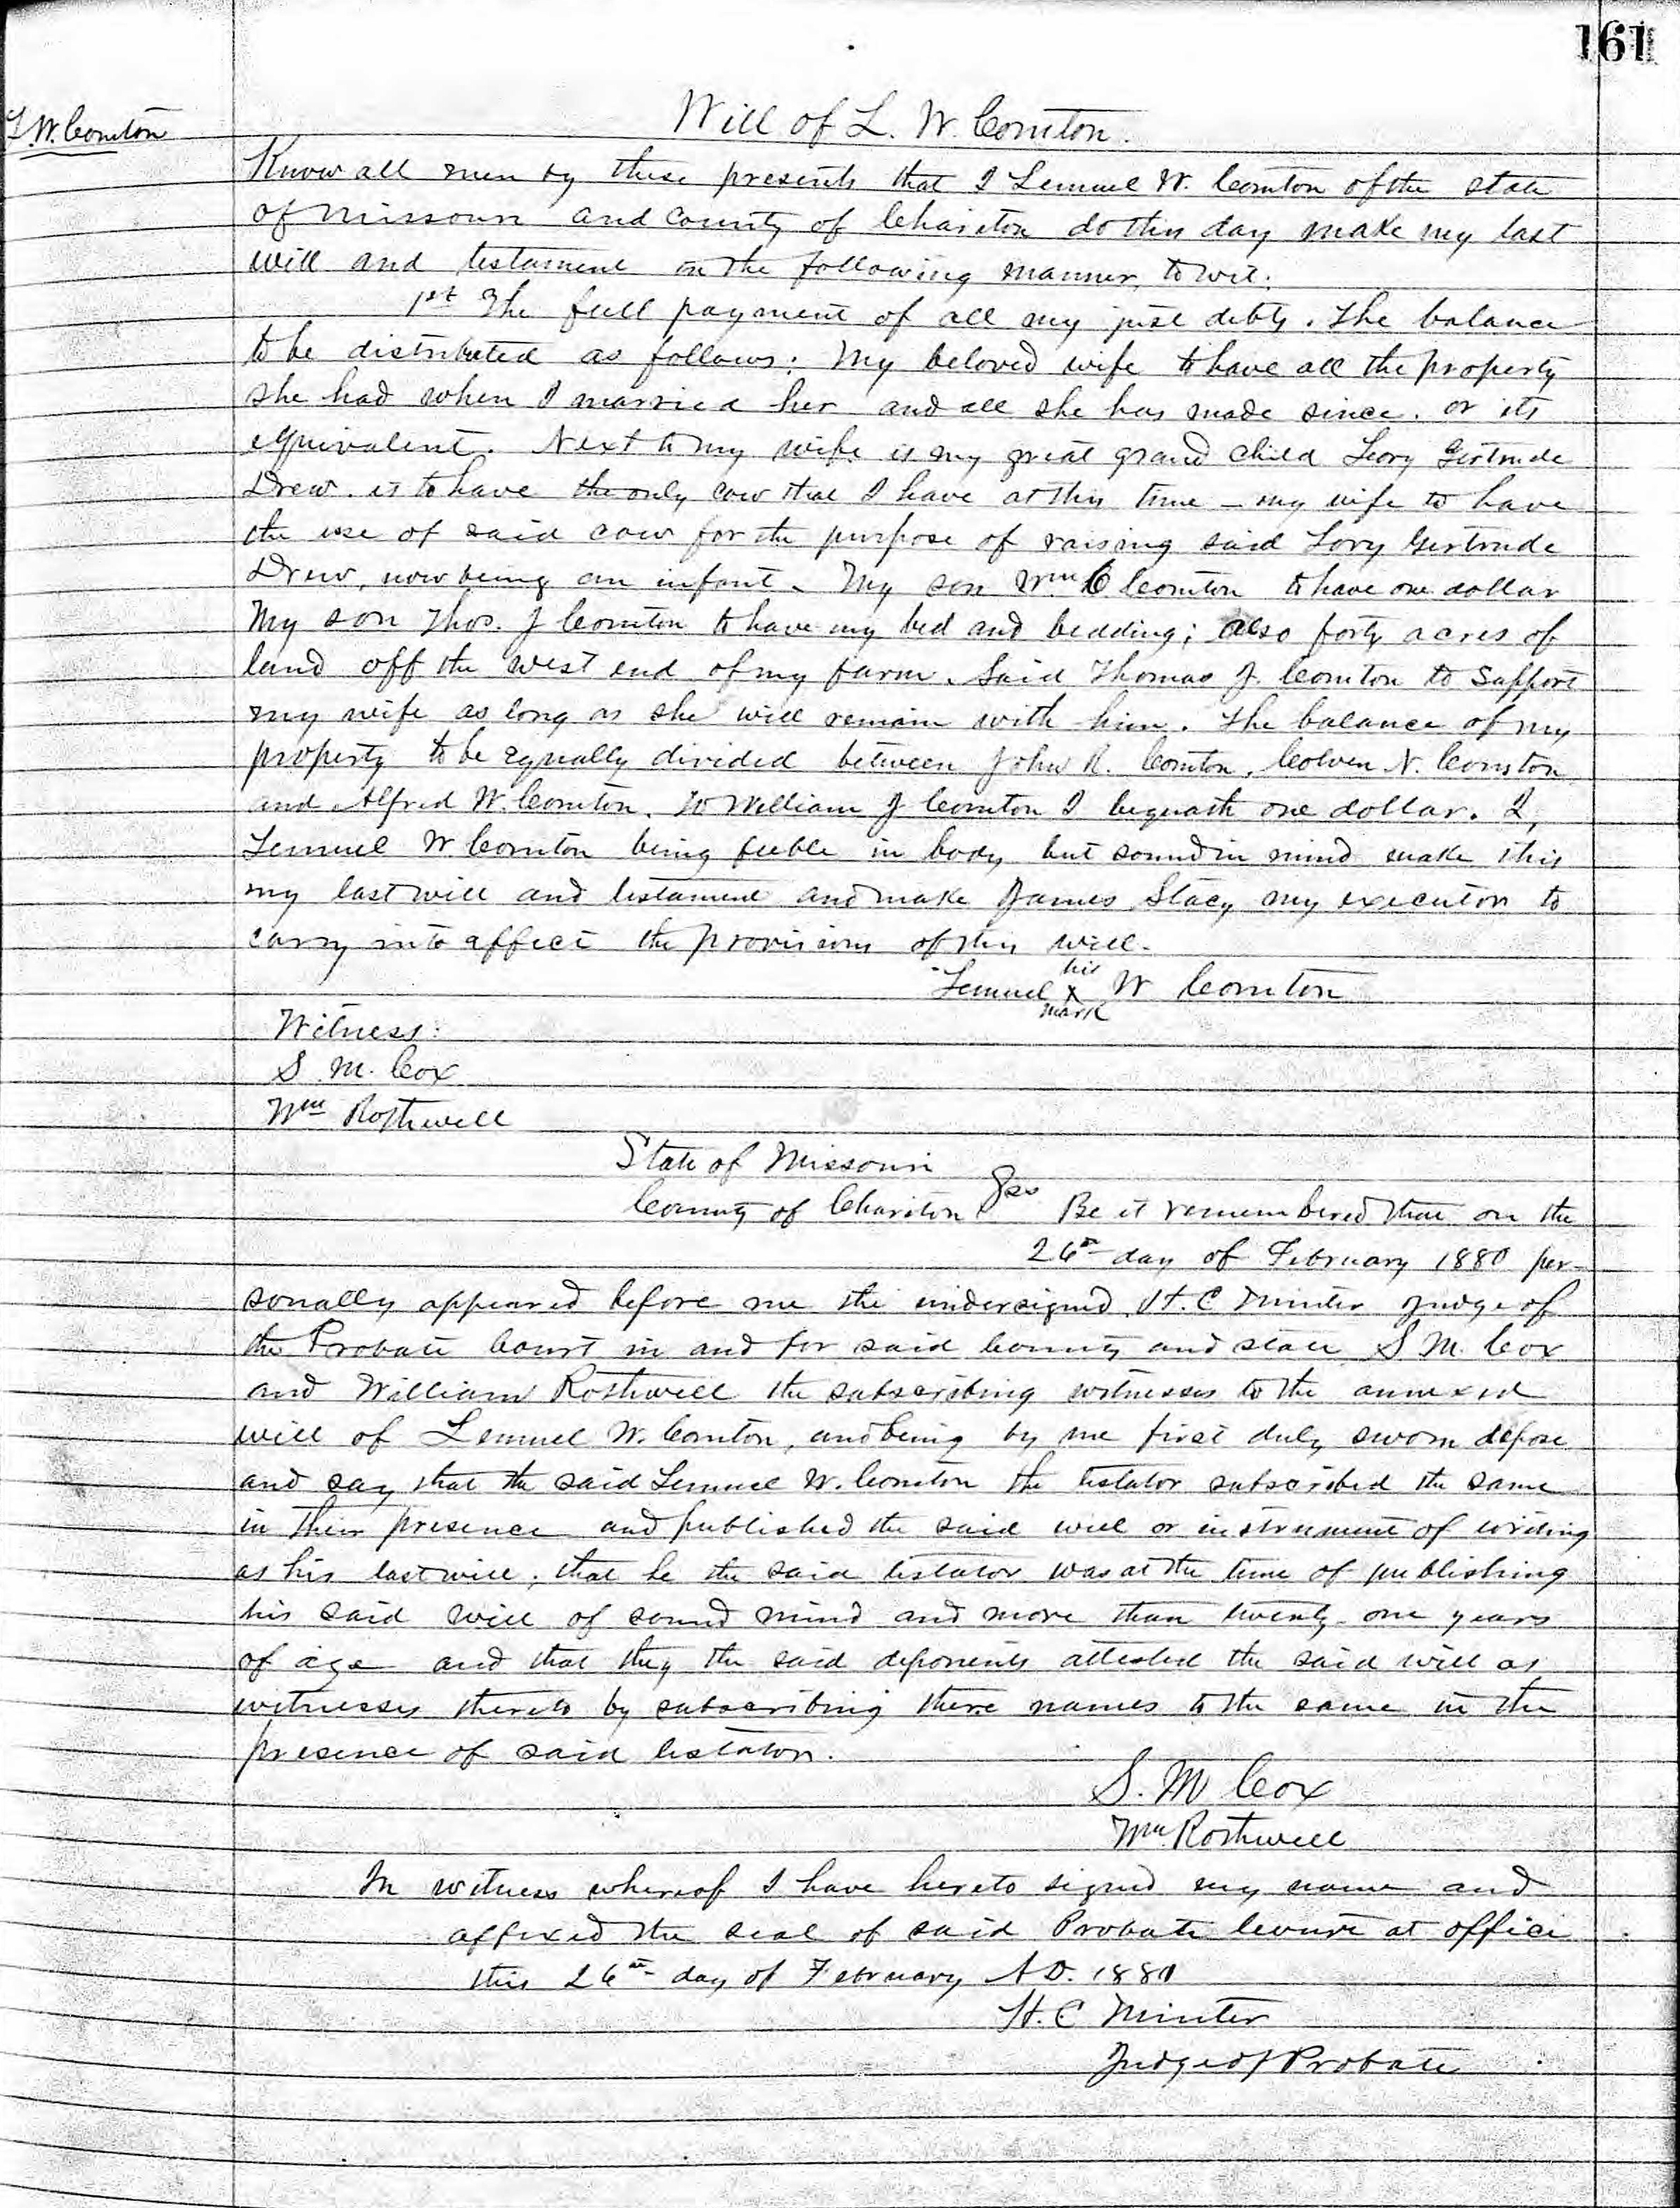 161
L. W. Comton
Will of L. W. Comton.
Know all men by these presents that I Lemuel W. Comton of the state
of Missouri and County of Chariton do this day make my last
will and testament in the following manner, to wit:
1st The full payment of all my just debts. The balance
to be distributed as follows: My beloved wife to have all the property
she had when I married her and all she has made since. or its
equivalent. Next to my wife is my great grand child Lory Gertrude
Drew. is to have the only cow that I have at this time – my wife to have
the use of said cow for the purpose of raising said Lory Gertrude
Drew, now being an infant. My son Wm C Comton to have one dollar
My son Thos. J Comton to have my bed and bedding; also forty acres of
land off the west end of my farm. Said Thomas J. Comton to Support
my wife as long as she will remain with him. The balance of my
property to be equally divided between John R. Comton, Colven N. Comston
and Alfred W. Comton. To William J Comton I bequath one dollar. I,
Lemuel W. Comton being feeble in body but sound in mind make this
my last will and testament and make James Stacy my executor to
carry into affect the provisions of this will.
his
Lemuel X W Comton
mark
Witness:
S. M. Cox
Wm Rothwell
State of Missouri
County of Chariton } ss Be it remembered that on the
26th day of February 1880 per-
sonally appeared before me the undersigned, H. C Minter Judge of
the Probate Court in and for said County and state S. M. Cox
and William Rothwell the subscribing witnesses to the annexed
will of Lemuel W. Comton, and being by me first duly sworn depose
and say that the said Lemuel W. Comton the testator subscribed the same
in their presence and published the said will or instrument of writing
as his last will; that he the said testator was at the time of publishing
his said will of sound mind and more than twenty one years
of age and that they the said deponents attested the said will as
witnesses thereto by subscribing there names to the same in the
presence of said testator.
S. M Cox
Wm. Rothwell
In witness whereof I have hereto signed my name and
affixed the seal of said Probate Court at office
this 26th day of February A D. 1880
H. C Minter
Judge of Probate